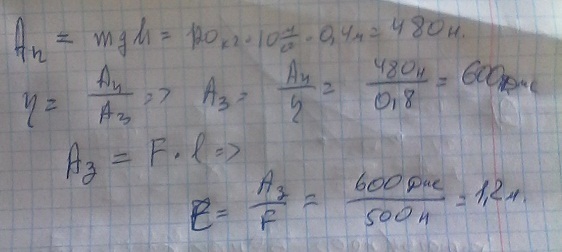 Aп = mgh = 120 кг · 10 м/с² · 0,4м = 480 н.
η = Aп/Aз => Aз = Aп/η = 480н/0,8 = 600 Дж
Aз = F · l =>
l = Aз/F = 600 Дж/500 н = 1,2 м.